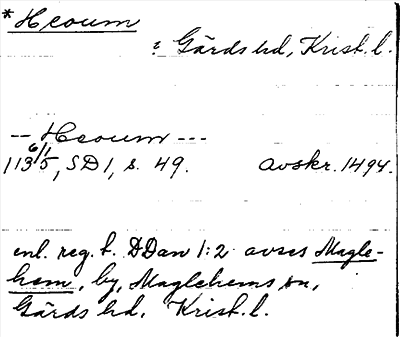 *Heoum
: Gärds hd, Krist. l.
-- Heoum ---
6/1
1135, SD1, s. 49. avskr. 1494.
enl. reg. t. DDan 1:2 avses Magle-
hem, by, Maglehems sn,
Gärds hd, Krist. l.